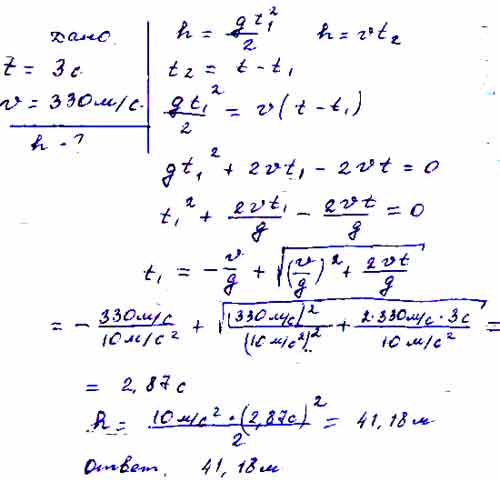 Дано
t = 3с
v = 330м/с.
h - ?
h = gt₁²/2    h = vt₂
t₂ = t - t₁
gt₁²/2 = v(t - t₁)
gt₁² + 2vt₁ - 2vt = 0
t₁² + 2vt₁/g - 2vt/g = 0
t₁ = -v/g + √((v/g)² + 2vt/g)
= - 330м/с/10м/с² + √((330м/с)²/(10м/с²)² + 2·330м/с·3с/10м/с²) =
= 2,87с
h = 10м/с²·(2,87с)²/2 = 41,18м
Ответ. 41,18м